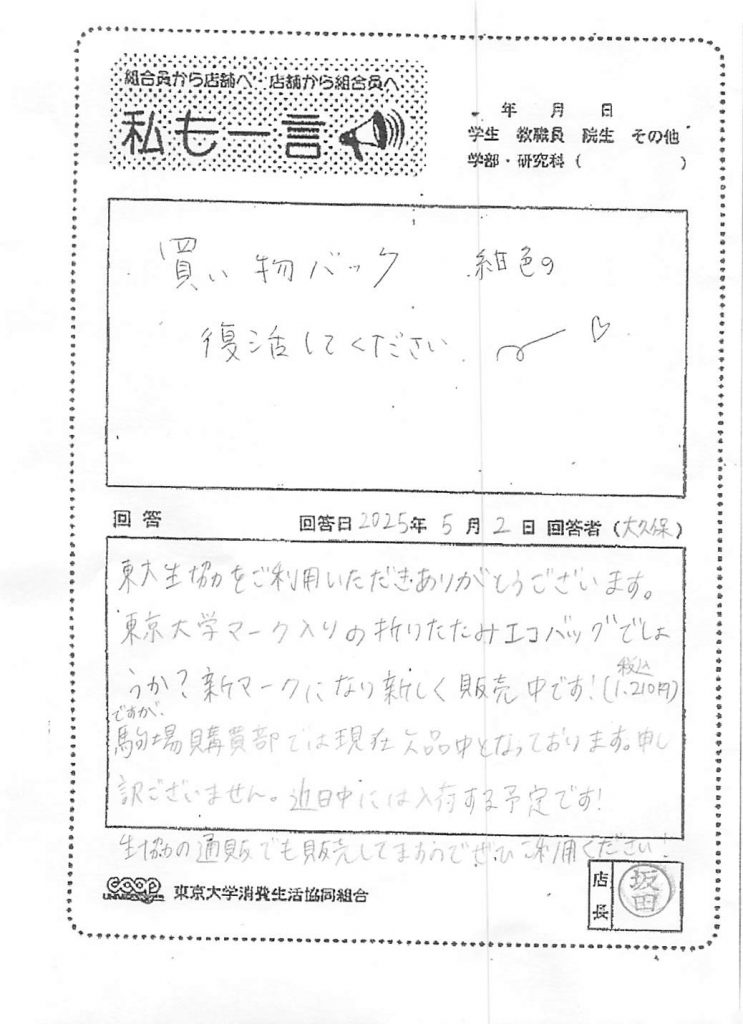 組合員から店舗へ・店舗から組合員へ
私も一言
年 月 日
学生 教職員 院生 その他
学部・研究科 ( )
買い物バック 紺色の
復活してください
回答 回答日2025年5月2日 回答者(大久保)
東大生協をご利用いただきありがとうございます。
東京大学マーク入りの折りたたみエコバッグでしょ
うか?新マークになり新しく販売中です!(税込1,210円)
ですが、
駒場購買部では現在欠品中となっております。申し
訳ございません。近日中には入荷する予定です!
生協の通販でも販売してますのでぜひご利用ください!
coop UNIVERSITY 東京大学消費生活協同組合
店長 坂田